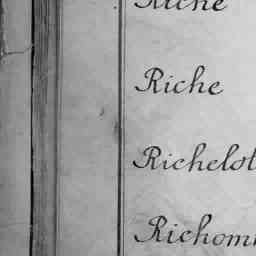 Riche
Riche
Richelot
Richomm